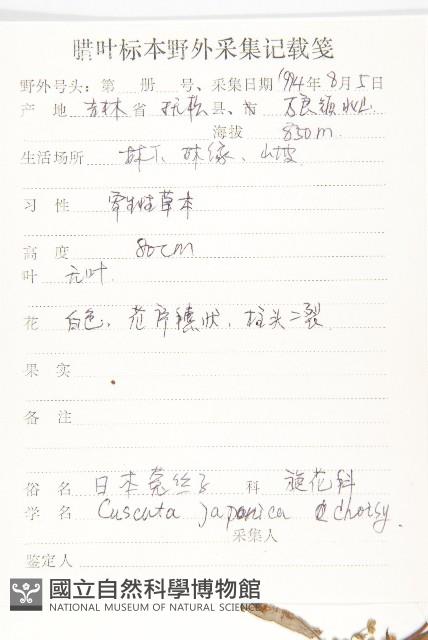 腊叶标本野外采集记载笺
野外号头：第 册 号、采集日期 1994年8月5日
产 地 吉林省 抚松县、市 万良镇
海拔 850m
生活场所 林下、林缘、山坡
习 性 寄生性草本
高 度 80cm
叶 无叶
花 白色，花序穗状，柱头二裂
果 实
备 注
俗 名 日本菟丝子 科 旋花科
学 名 Cuscuta japonica choisy.
采集人
鉴定人
國立自然科學博物館
NATIONAL MUSEUM OF NATURAL SCIENCE